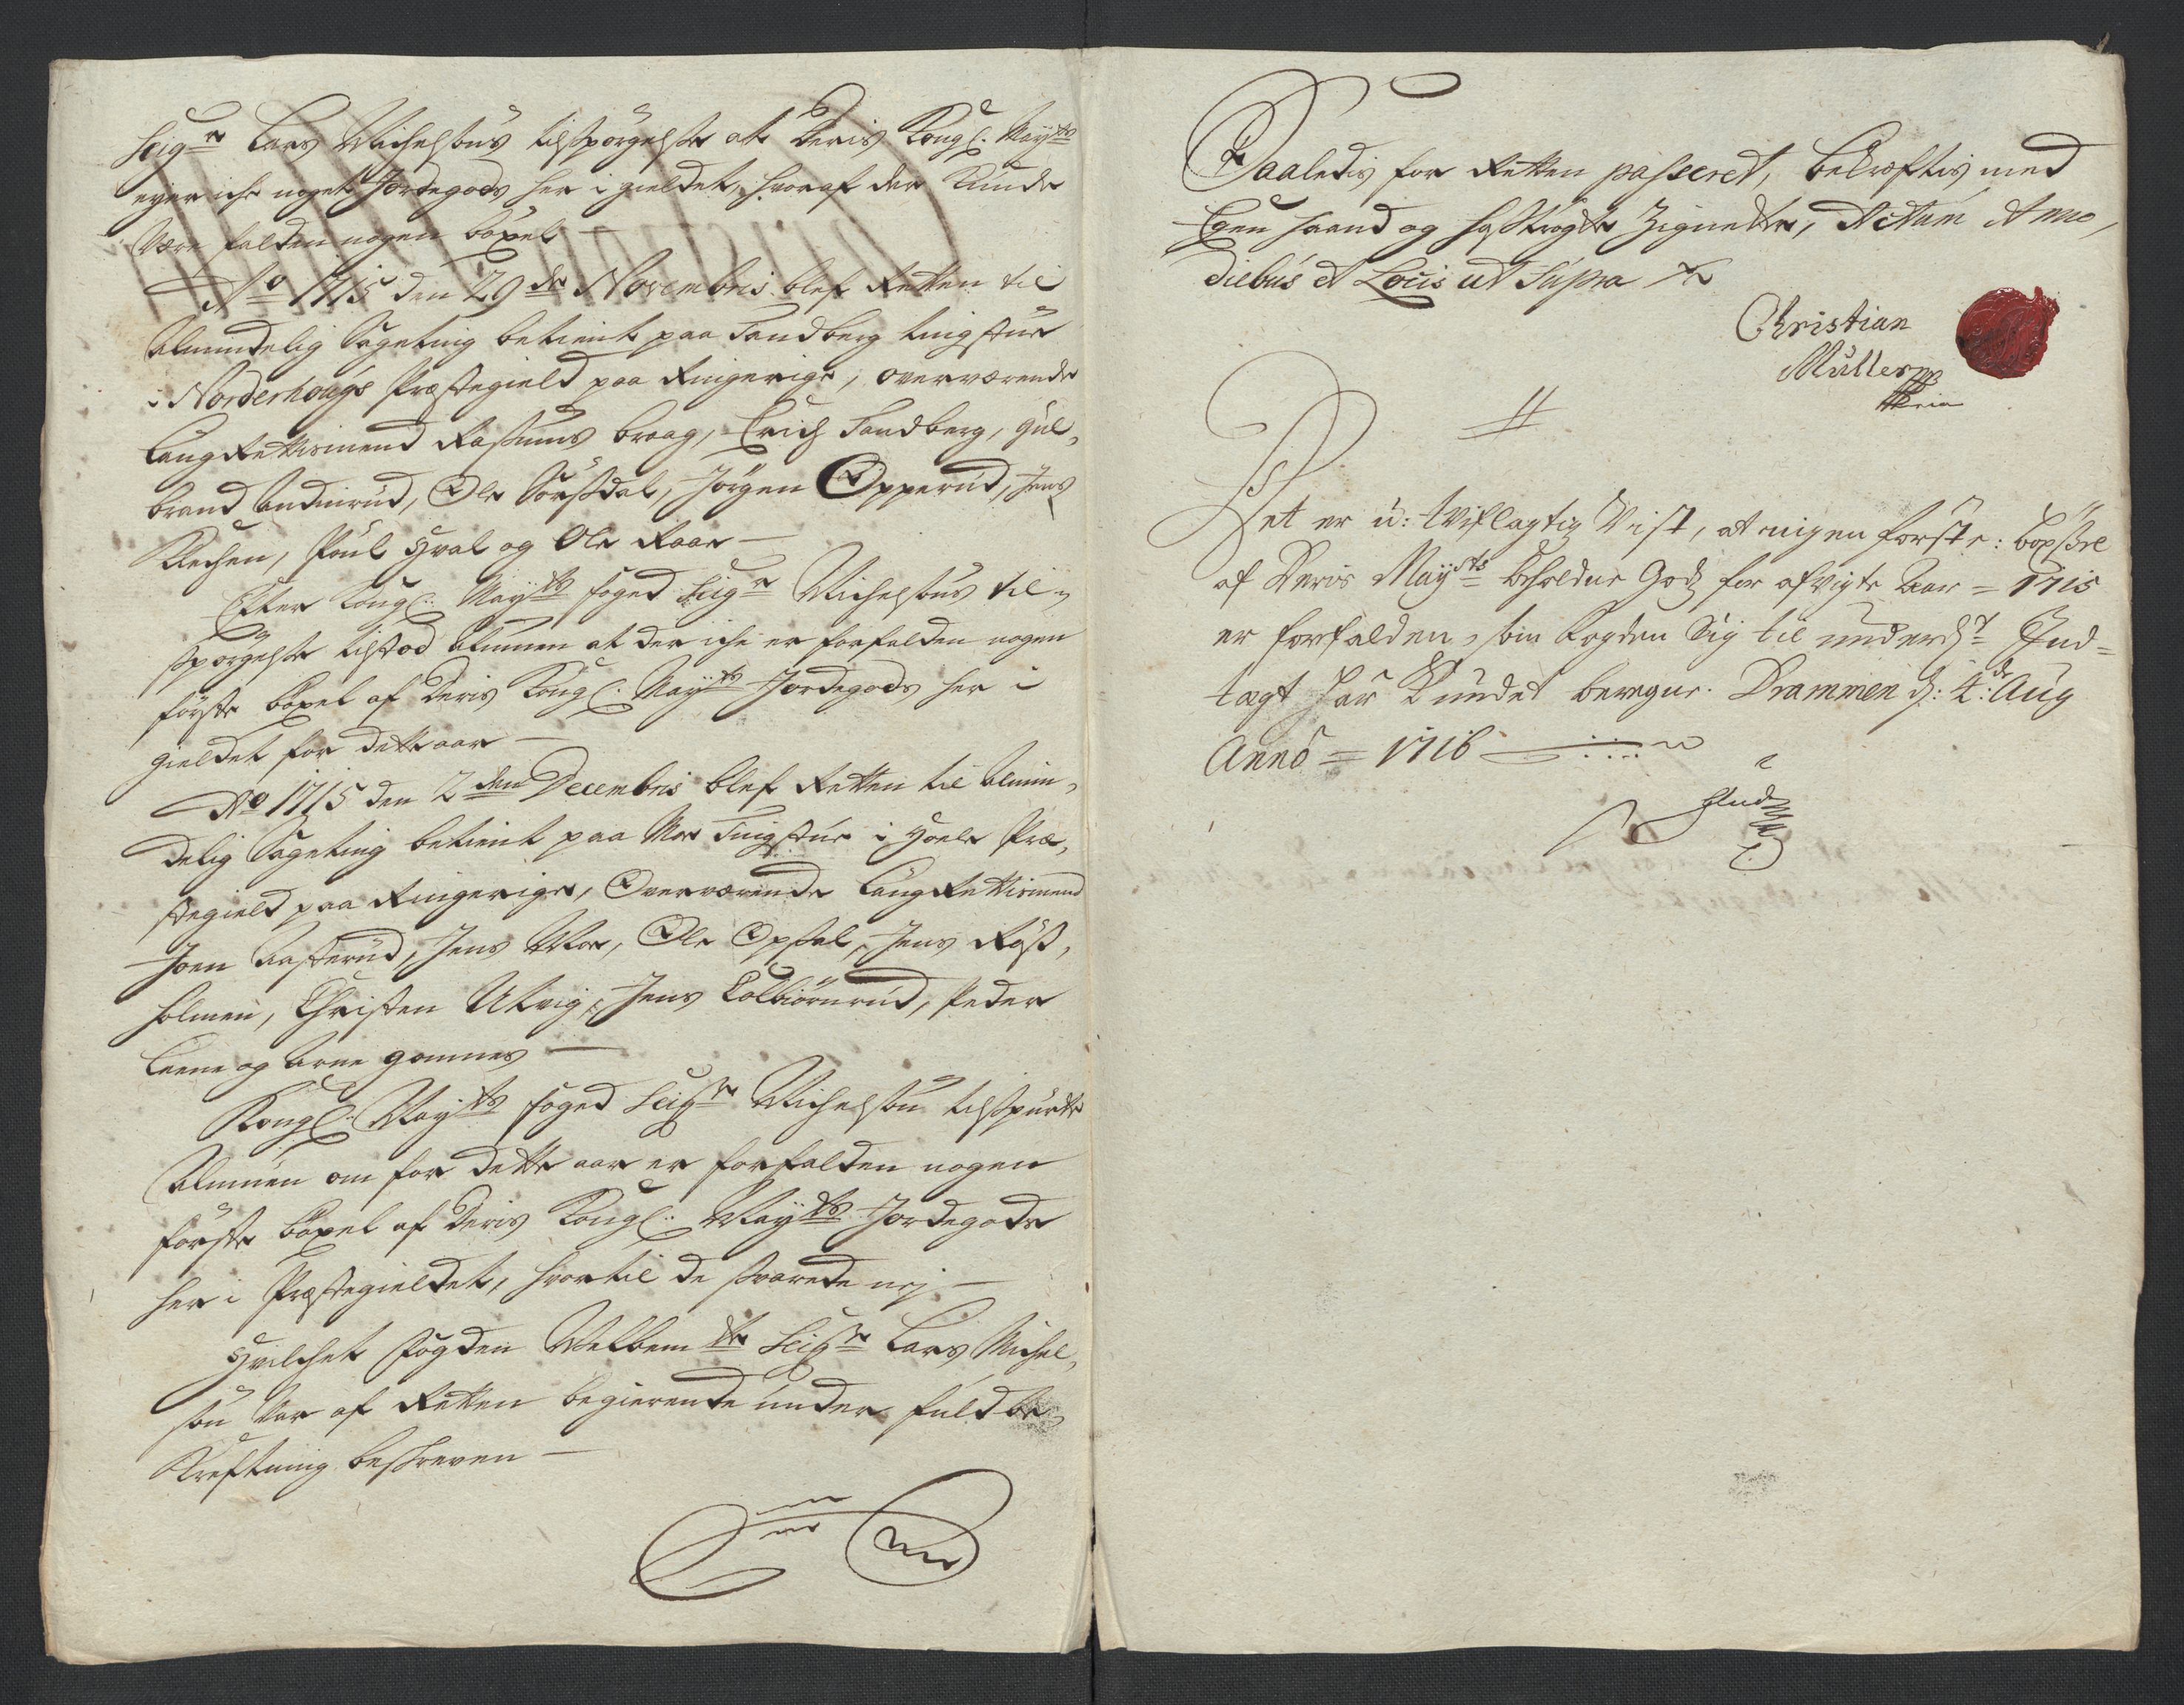 Seig:r Lars Michelsøns tilspørgelse at Deris Kongl: May:ts
eyer iche noget Jordegods her i gieldet, hvoraf der kunde
være falden nogen böxel —
A:o 1715 den 29:de Novembris blef Retten til
Almindelig Sageting betient paa Sandberg tingstue
i Norderhougs Præstegield paa Ringerige, overværende
LaugRettismend Rasmus braag, Erich Sandberg, gul,
brand Andinrud, Ole Sørsdal, Jörgen Opperud, Jens
Klechen, Poul Hval og Ole Raae —
Efter Kongl: May:ts foged Seig:r Michelsøns til,
spørgelse tilstod Almuen at der iche er forfalden nogen
förste böxel af Deris Kongl: May:ts Jordegods her i
gieldet for dette aar —
A:o 1715 den 2:den Decembris blef Retten til Almin,
delig Sageting betient paa Moe Tingstue i Hoele Præ,
stegield paa Ringerige, Overværende LaugRettismend
Joen Aasterud, Jens Moe, Ole Opsal, Jens Røst,
holmen, Christen Utvig, Jens Colbiörnrud, Peder
Leene og Arne gomnes —
Kongl: May:ts foged Seig:r Michelsøn tilspurte
Almuen om for dette aar er forfalden nogen
förste böxel af Deris Kongl: May:ts Jordegods
her i Præstegieldet, hvortil de svarede nej —
Hvilchet fogden Velbem:te Seig:r Lars Michel,
søn var af Retten begierende under fuld be,
kreftning beskreven —
Saaledis for Retten passeret, bekræftis med
Egen haand og hoströgte Zignette, Actum Anno,
diebus et Locis ut Supra
Christian
Müller mp
pria
Det er u: tviflagtig Vist, at ingen förste: böxsle
af Deris May:ts beholdne Godz for afvigte Aar = 1715
er forfalden, som Fogden Sig til underd:t Ind=
tagt har kundet beregne. Drammen d: 4:de Aug
Anno = 1716